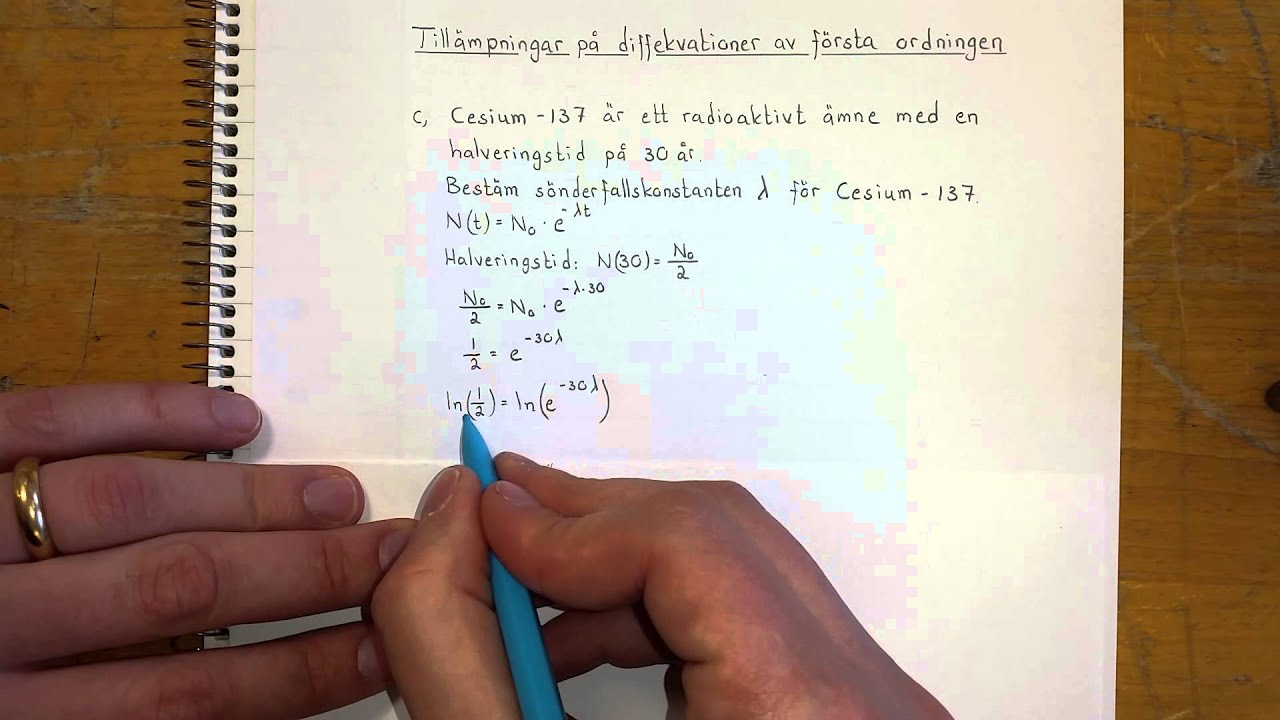 Tillämpningar på diffekvationer av första ordningen
c, Cesium-137 är ett radioaktivt ämne med en
halveringstid på 30 år.
Bestäm sönderfallskonstanten λ för Cesium-137.
N(t) = N₀ · e^(-λt)
Halveringstid: N(30) = N₀/2
N₀/2 = N₀ · e^(-λ·30)
1/2 = e^(-30λ)
ln(1/2) = ln(e^(-30λ))